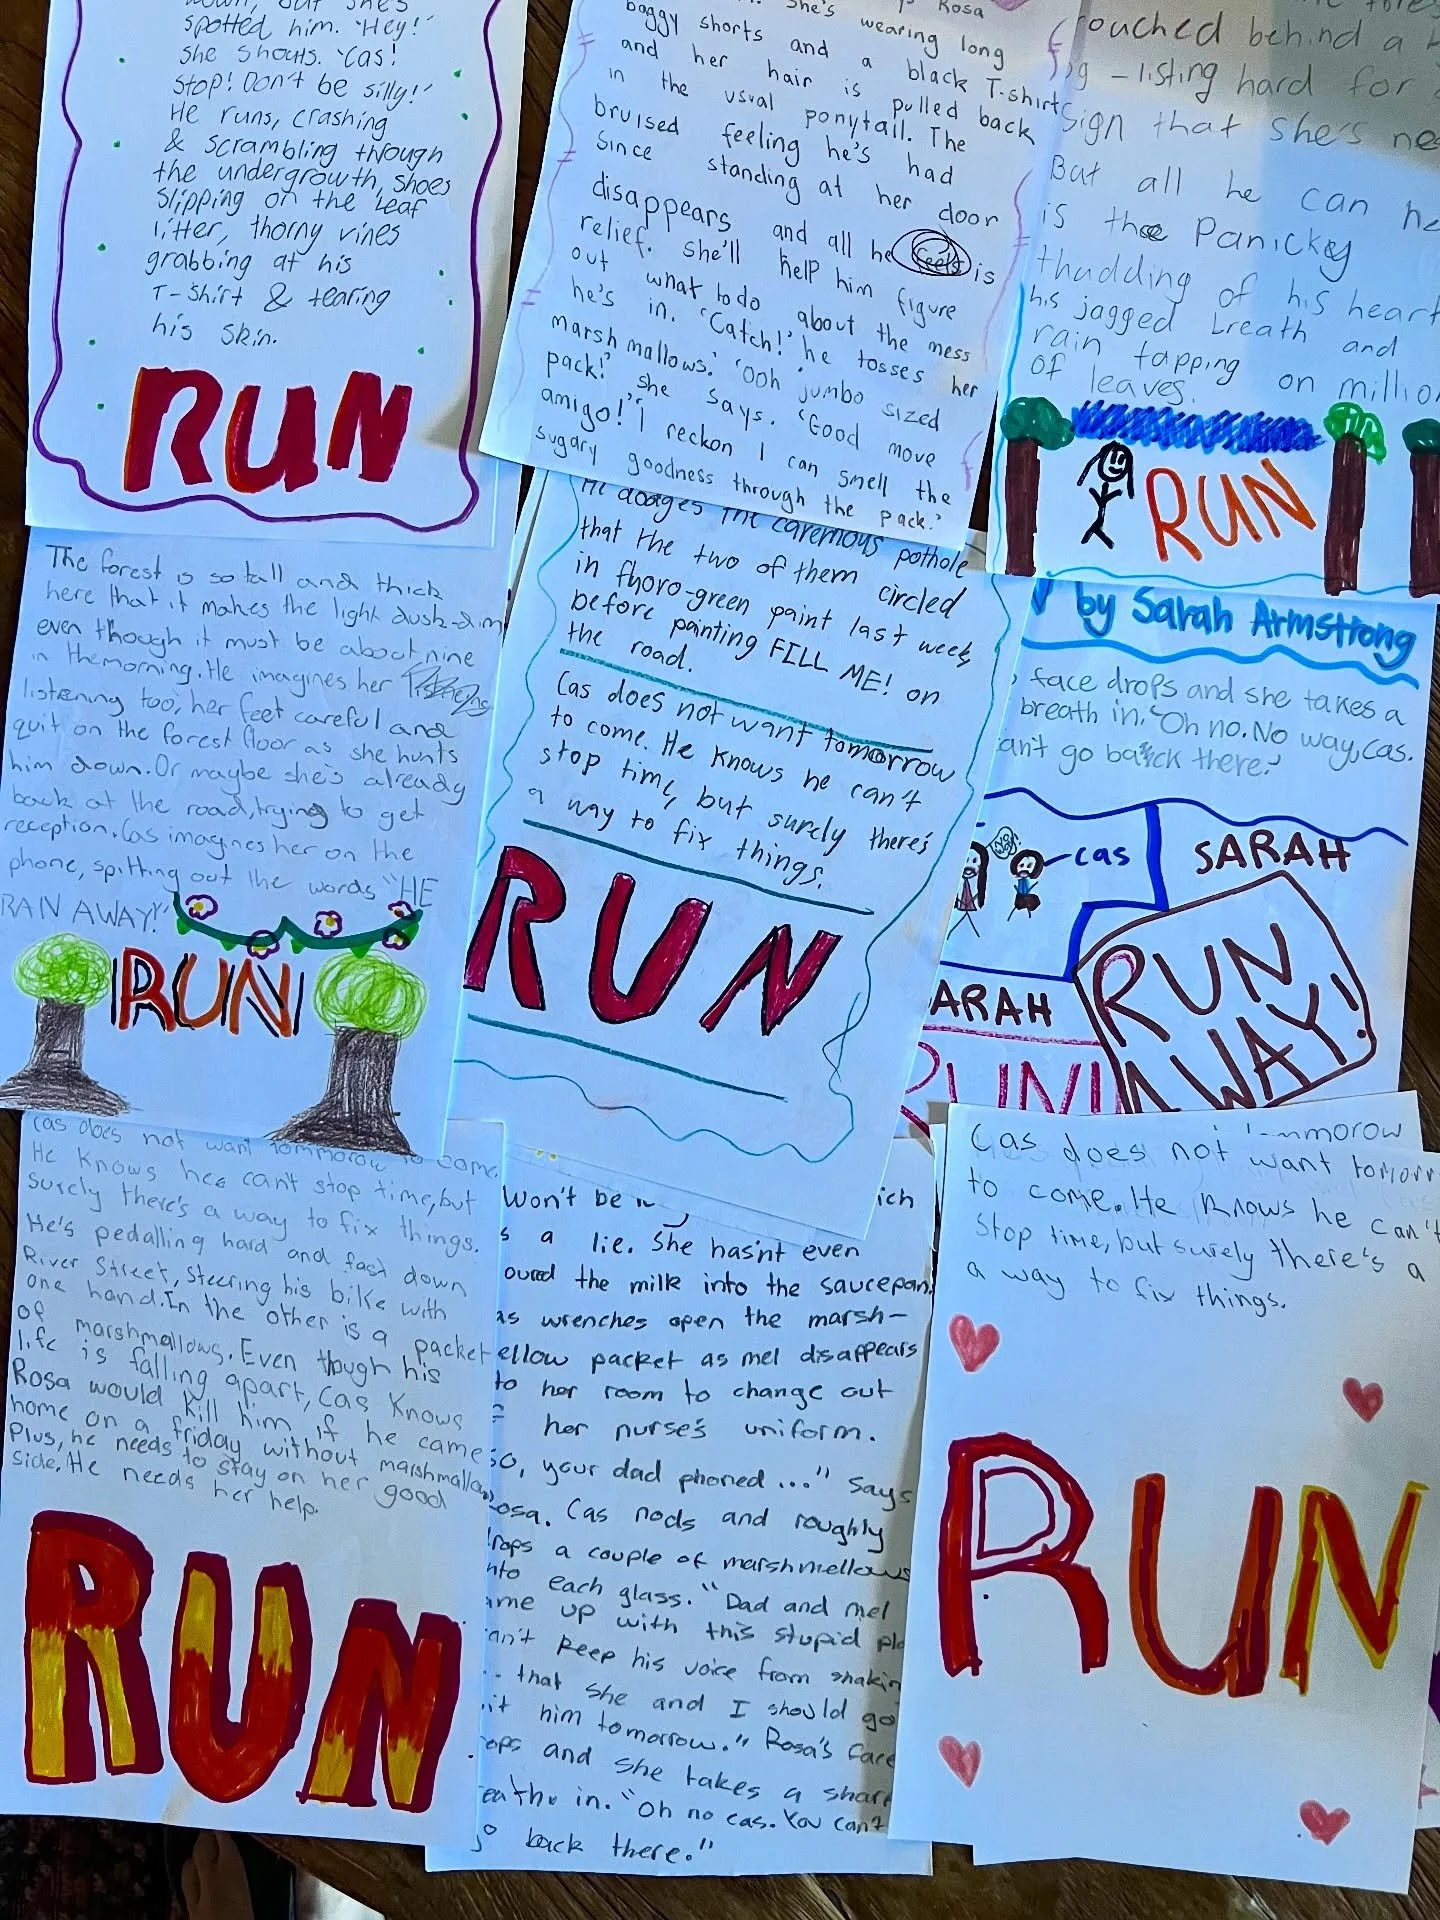 spotted him. 'Hey!'
she shouts. 'Cas!
Stop! Don't be silly!'
He runs, crashing
& scrambling though
the undergrowth, shoes
slipping on the leaf
litter, thorny vines
grabbing at his
T-Shirt & tearing
his skin.
RUN
Rosa
She's wearing long
baggy shorts and a black T-shirt
and her hair is pulled back
in the usual ponytail. The
bruised feeling he's had
since standing at her door
disappears and all he is
relief. She'll help him figure
out what to do about the mess
he's in. 'Catch!' he tosses her
marshmallows.' 'Ooh jumbo sized
pack!' she says. 'Good move
amigo!' 'I reckon I can smell the
sugary goodness through the pack.'
ouched behind a
– listing hard for
sign that she's
But all he can
is the Panicky
thudding of his heart
his jagged breath and
rain tapping on million
of leaves.
RUN
The forest is so tall and thick
here that it makes the light dusk-dim
even though it must be about nine
in the morning. He imagines her
listening too, her feet careful and
quit on the forest floor as she hunts
him down. Or maybe she's already
back at the road, trying to get
reception. Cas imagines her on the
phone, spitting out the words "HE
RAN AWAY!"
RUN
He dodges the caremous pothole
that the two of them circled
in fhoro-green paint last week,
before painting FILL ME! on
the road.
Cas does not want tomorrow
to come. He knows he can't
stop time, but surely there's
a way to fix things.
RUN
by Sarah Armstrong
face drops and she takes a
breath in. "Oh no. No way, Cas.
an't go back there."
cas
SARAH
RUN
AWAY!
ARAH
RUN
Cas does not want tommorow to come.
He knows he can't stop time, but
surely there's a way to fix things.
He's pedalling hard and fast down
River Street, steering his bike with
one hand. In the other is a packet
of marshmallows. Even though his
life is falling apart, Cas knows
Rosa would kill him if he came
home on a friday without marshmallows
Plus, he needs to stay on her good
side. He needs her help.
RUN
won't be ich
s a lie. She hasn't even
oured the milk into the saucepan.
as wrenches open the marsh–
ellow packet as mel disappears
to her room to change out
her nurse's uniform.
so, your dad phoned ..." says
osa. Cas nods and roughly
rops a couple of marshmellows
nto each glass. "Dad and mel
ame up with this stupid pla
an't keep his voice from shakin
.. that she and I should go
it him tomorrow." Rosa's face
ops and she takes a sharp
eathe in. "Oh no cas. You can't
go back there."
tommorow
Cas does not want tomorr
to come. He knows he can't
stop time, but surely there's a
a way to fix things.
RUN